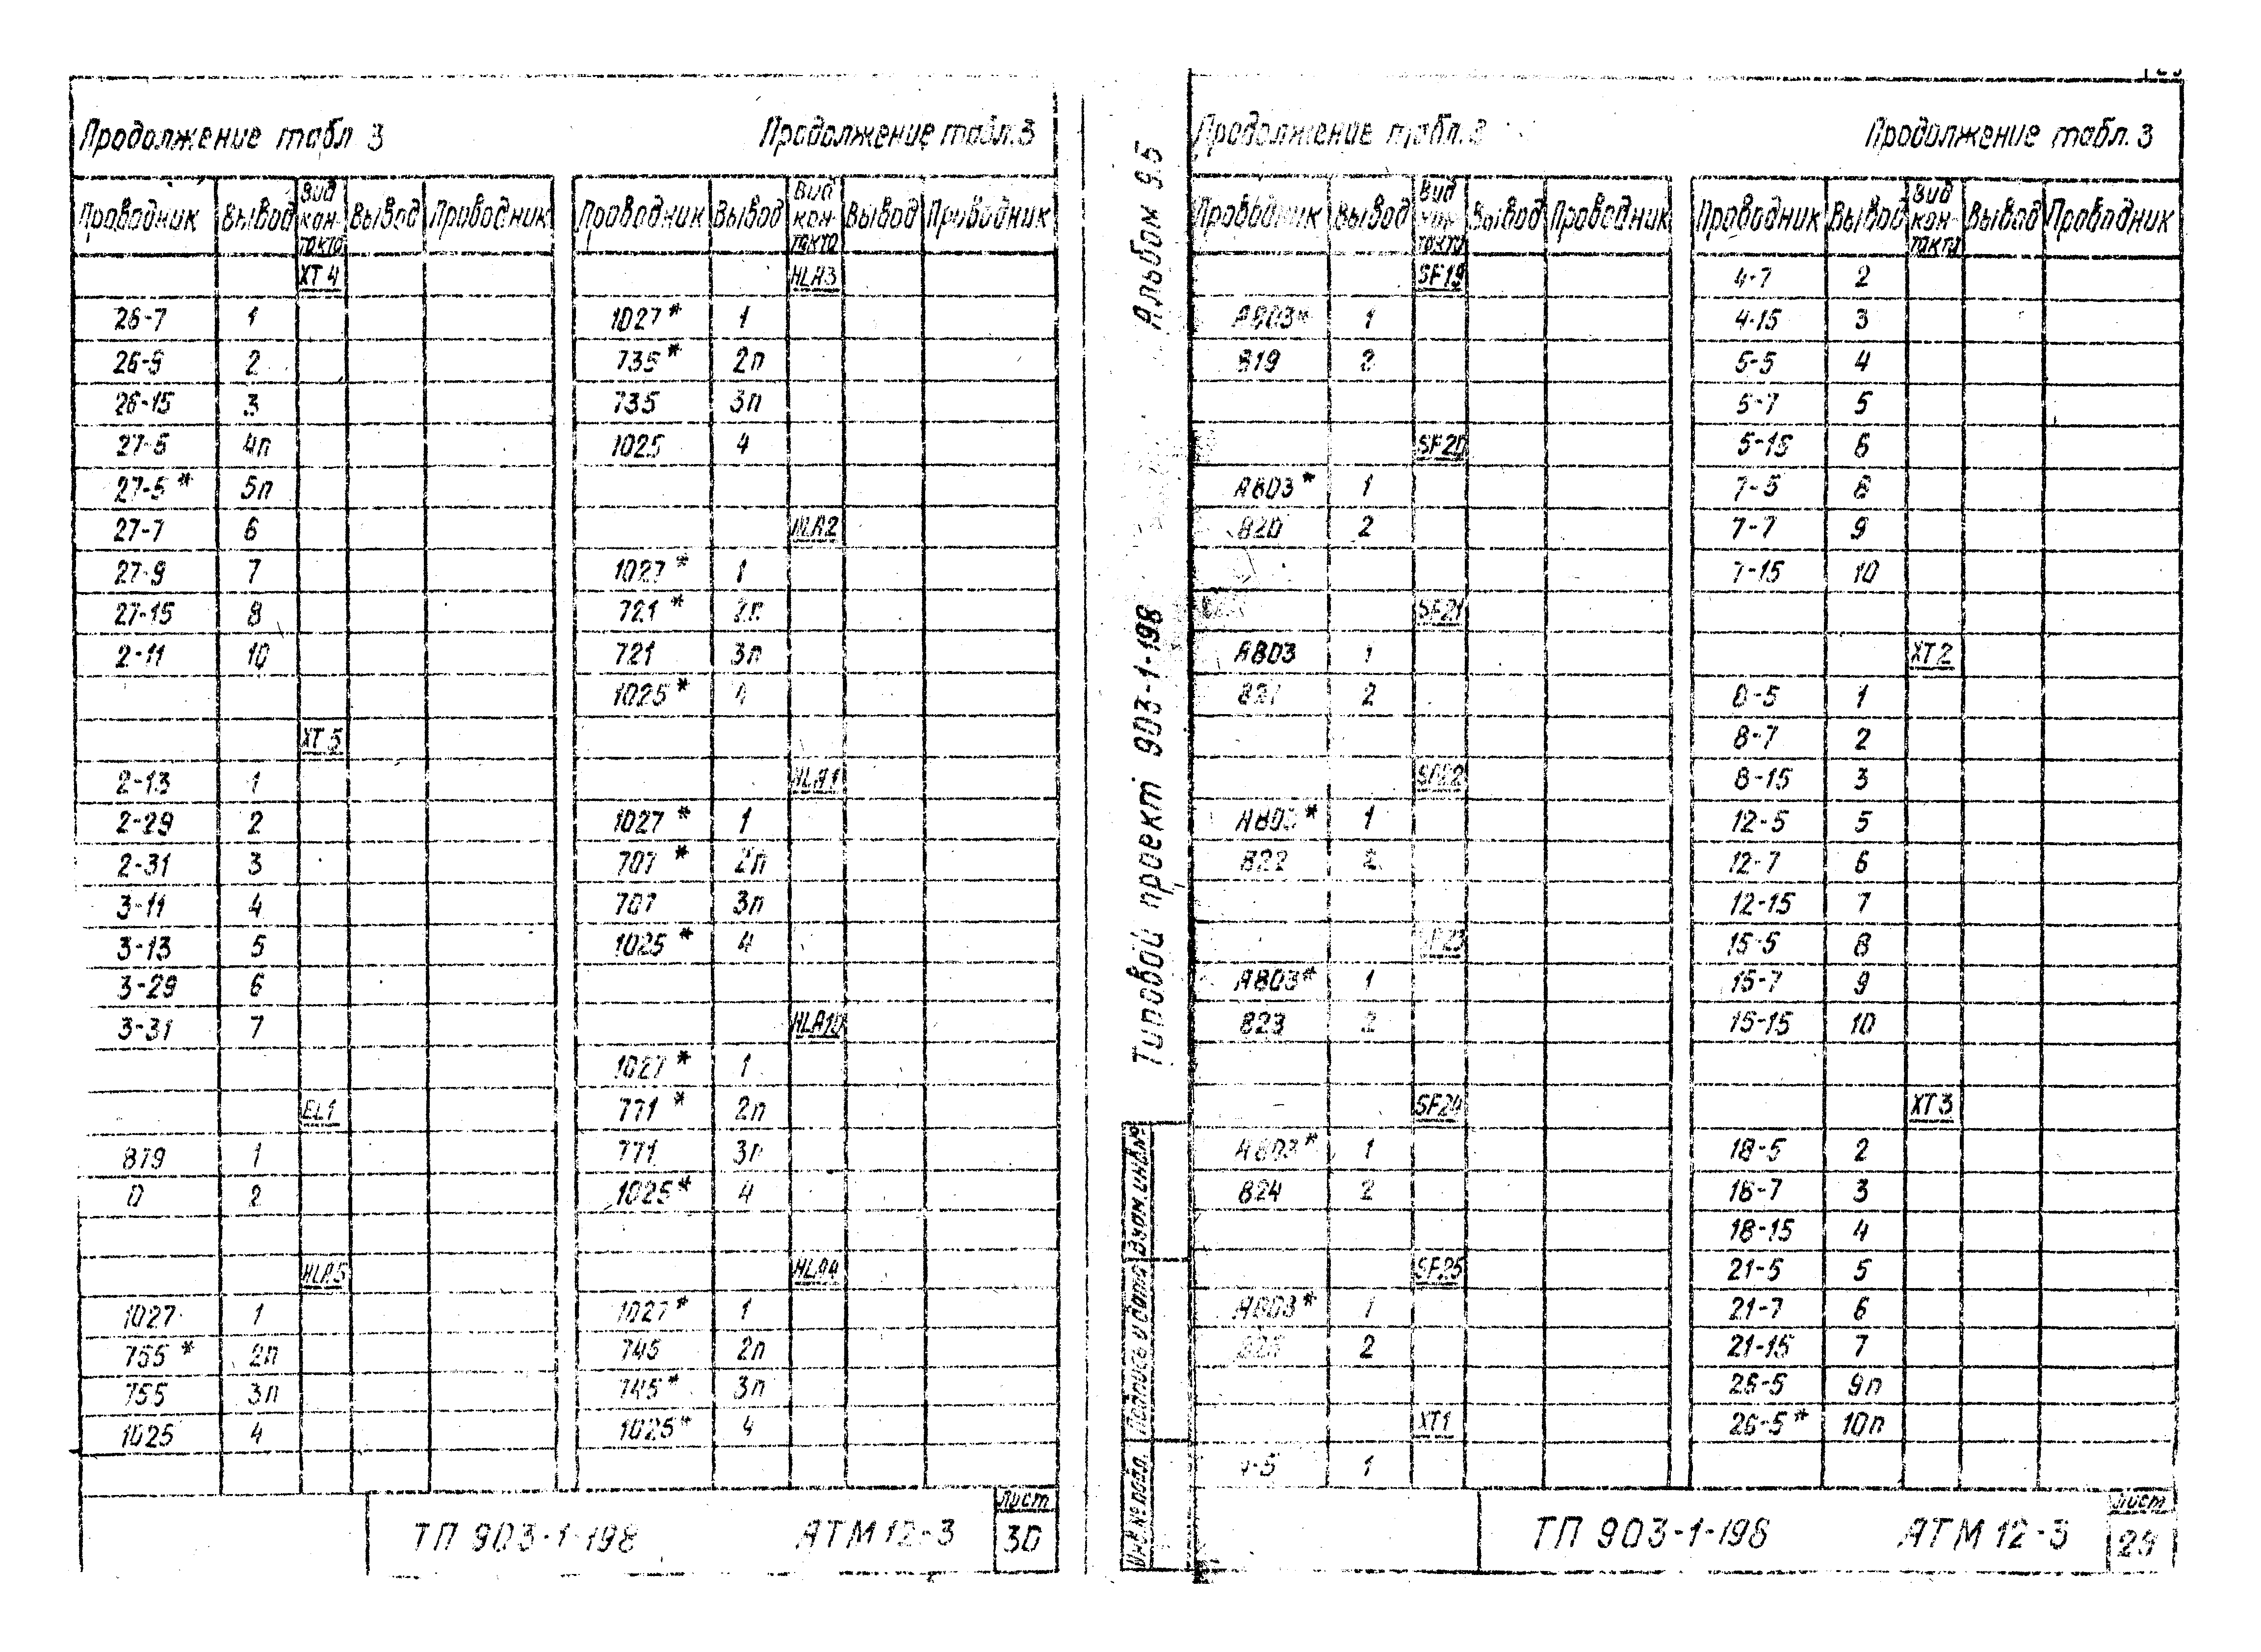 Продолжение табл 3
Проводник Вывод Вид контакта Вывод Проводник
XT 4
26-7 1
26-9 2
26-15 3
27-5 4п
27-5* 5п
27-7 6
27-9 7
27-15 8
2-11 10
XT 5
2-13 1
2-29 2
2-31 3
3-11 4
3-13 5
3-29 6
3-31 7
EL1
819 1
0 2
HLA5
1027 1
755* 2п
755 3п
1025 4
Продолжение табл.3
Проводник Вывод Вид контакта Вывод Проводник
HLA3
1027* 1
735* 2п
735 3п
1025 4
HLA2
1027* 1
721* 2п
721 3п
1025* 4
HLA1
1027* 1
707* 2п
707 3п
1025* 4
HLA10
1027* 1
771* 2п
771 3п
1025* 4
HLA4
1027* 1
745 2п
745* 3п
1025* 4
ТП 903-1-198 АТМ12-3
Лист
30
Альбом 9.5
Типовой проект 903-1-198
Взам.инв.№
Подпись и дата
Инв.№ подл.
Продолжение табл.3
Проводник Вывод Вид контакта Вывод Проводник
SF19
A803* 1
819 2
SF20
A803* 1
820 2
SF21
A803 1
821 2
SF22
A803* 1
822 2
SF23
A803* 1
823 2
SF24
A803* 1
824 2
SF25
A803* 1
825 2
XT1
4-5 1
Продолжение табл.3
Проводник Вывод Вид контакта Вывод Проводник
4-7 2
4-15 3
5-5 4
5-7 5
5-15 6
7-5 8
7-7 9
7-15 10
XT2
8-5 1
8-7 2
8-15 3
12-5 5
12-7 6
12-15 7
15-5 8
15-7 9
15-15 10
XT3
18-5 2
18-7 3
18-15 4
21-5 5
21-7 6
21-15 7
26-5 9п
26-5* 10п
ТП 903-1-198 АТМ12-3
Лист
29